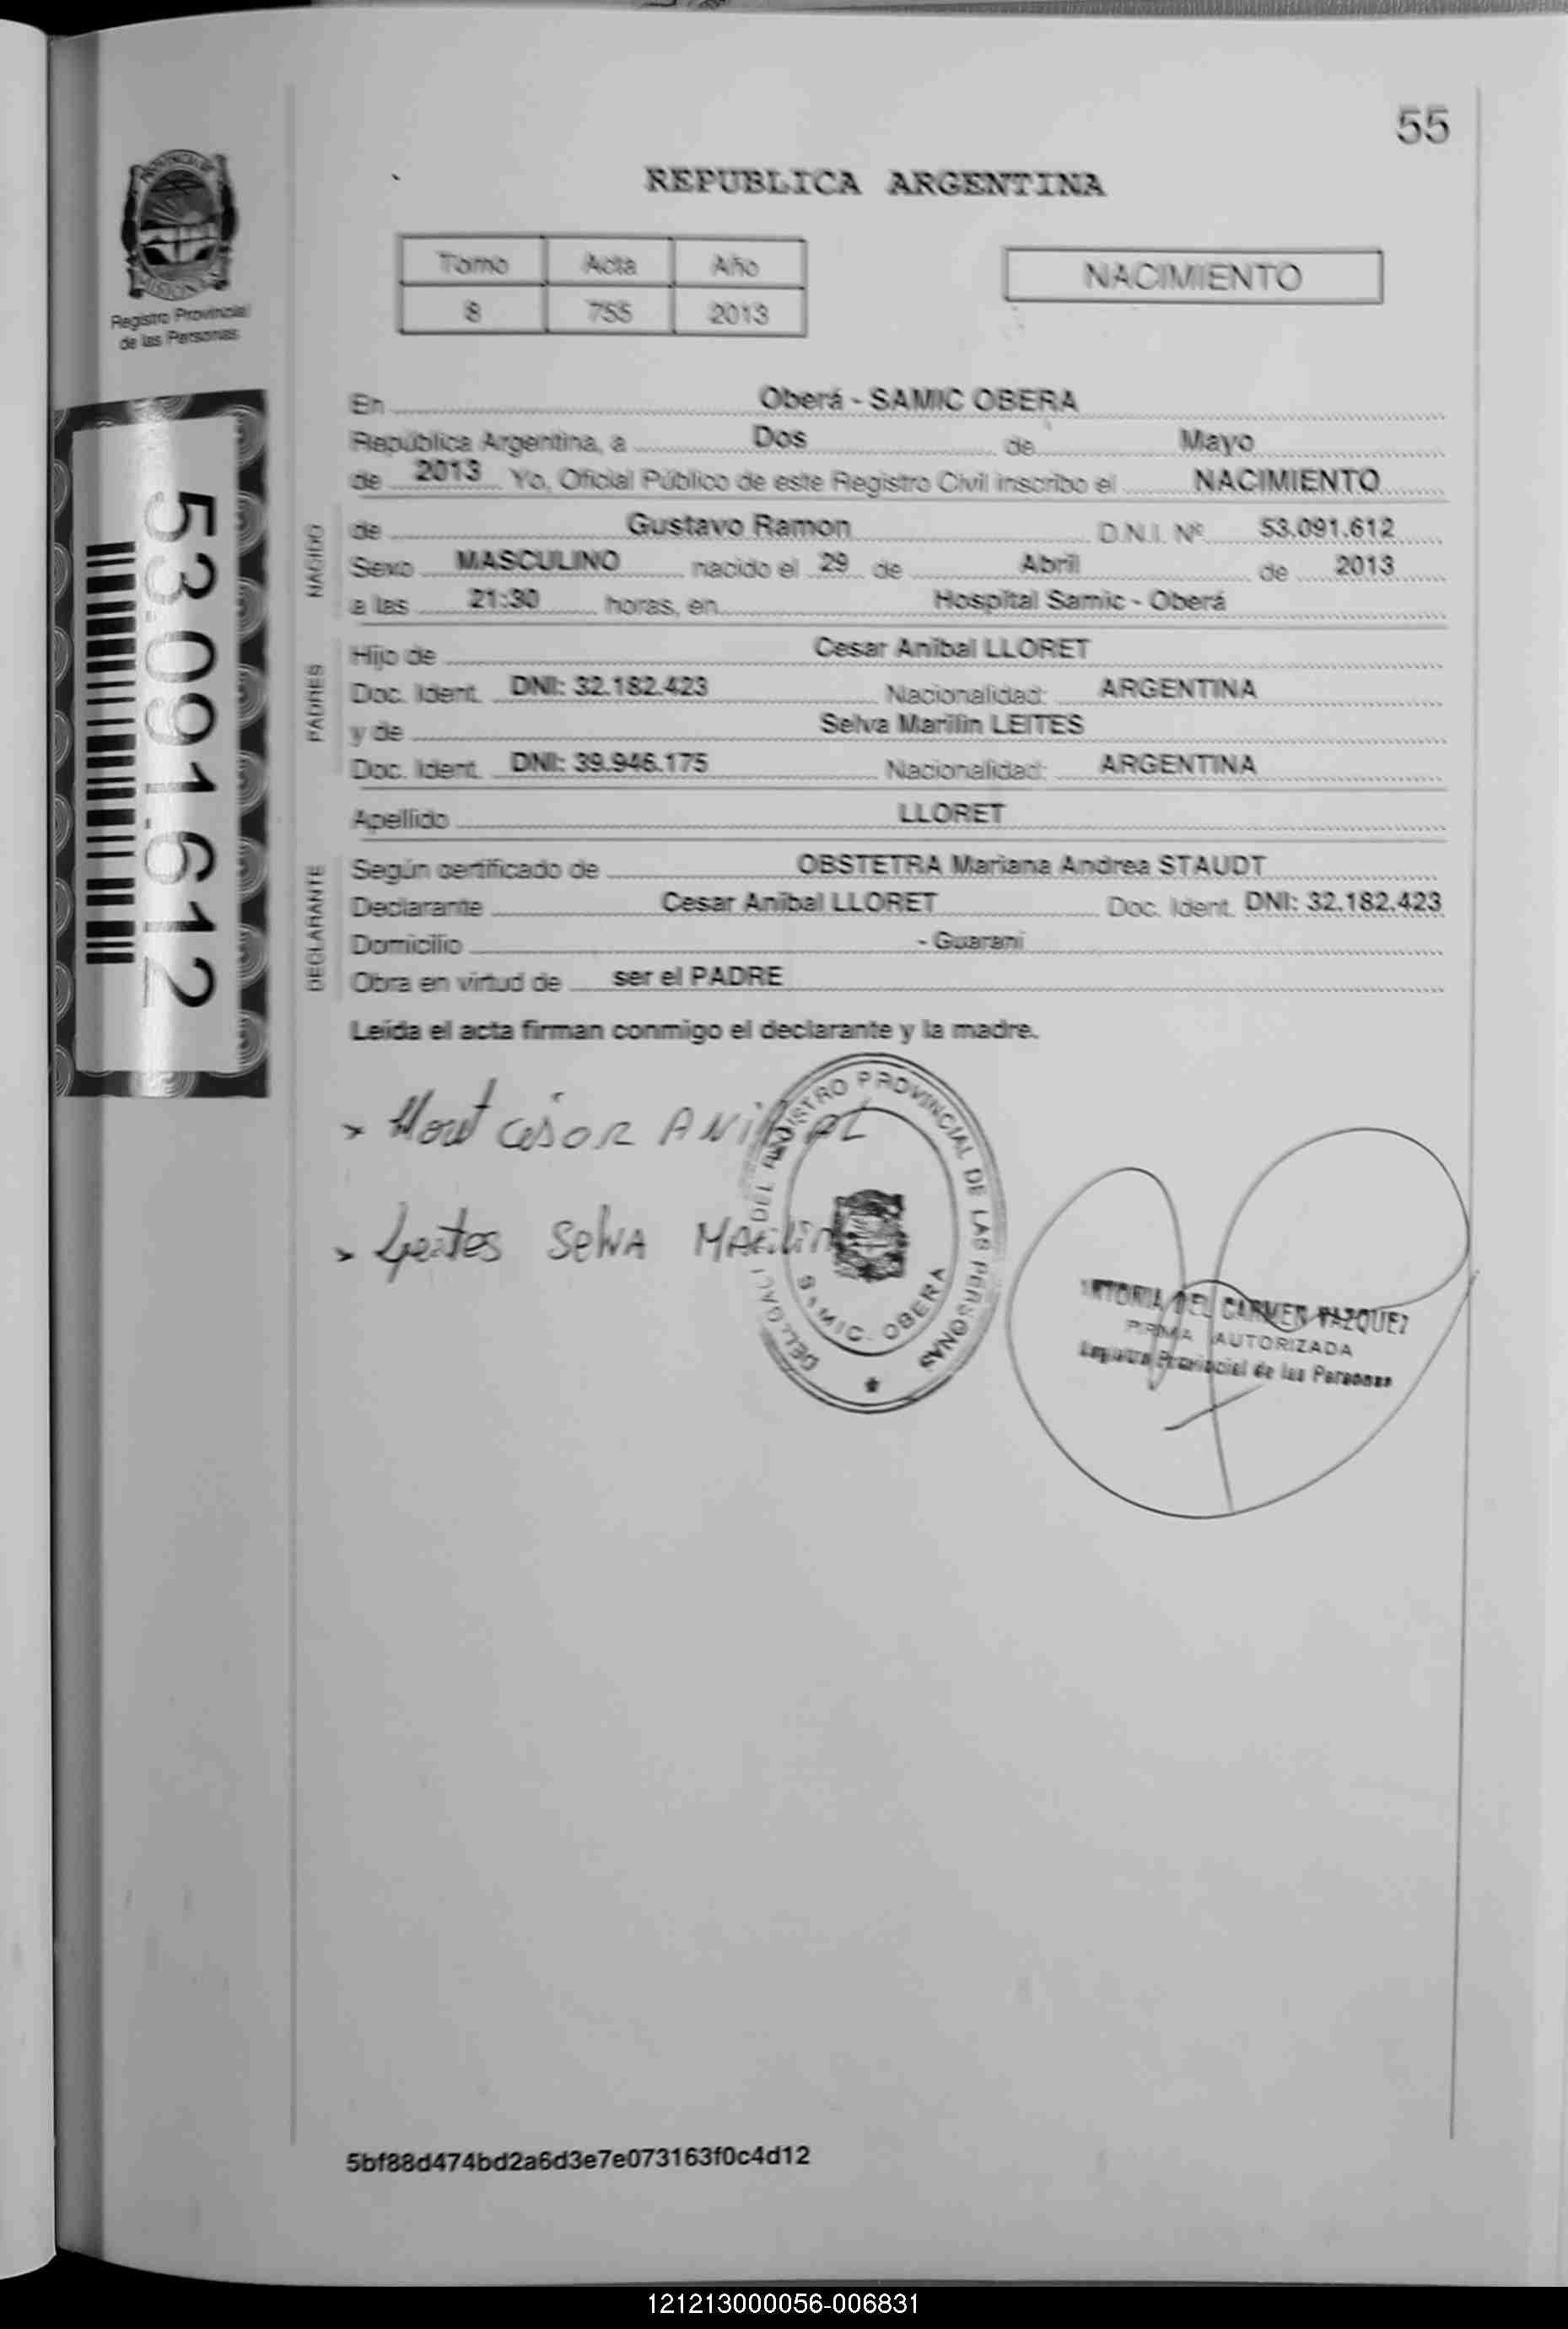 55
PROVINCIA DE
MISIONES
Registro Provincial
de las Personas
REPUBLICA ARGENTINA
Tomo Acta Año
8 755 2013
NACIMIENTO
53.091.612
En Oberá - SAMIC OBERA
República Argentina, a Dos de Mayo
de 2013 Yo, Oficial Público de este Registro Civil inscribo el NACIMIENTO
NACIDO
de Gustavo Ramon D.N.I. Nº 53.091.612
Sexo MASCULINO nacido el 29 de Abril de 2013
a las 21:30 horas, en Hospital Samic - Oberá
PADRES
Hijo de Cesar Anibal LLORET
Doc. Ident. DNI: 32.182.423 Nacionalidad: ARGENTINA
y de Selva Marilin LEITES
Doc. Ident. DNI: 39.946.175 Nacionalidad: ARGENTINA
Apellido LLORET
DECLARANTE
Según certificado de OBSTETRA Mariana Andrea STAUDT
Declarante Cesar Anibal LLORET Doc. Ident. DNI: 32.182.423
Domicilio - Guarani
Obra en virtud de ser el PADRE
Leída el acta firman conmigo el declarante y la madre.
CESAR ANIBAL
Leites Selva MARilin
DEL REGISTRO PROVINCIAL DE LAS PERSONAS
SAMIC. OBERA
DEL CARMEN VAZQUEZ
FIRMA AUTORIZADA
Registro Provincial de las Personas
5bf88d474bd2a6d3e7e073163f0c4d12
121213000056-006831